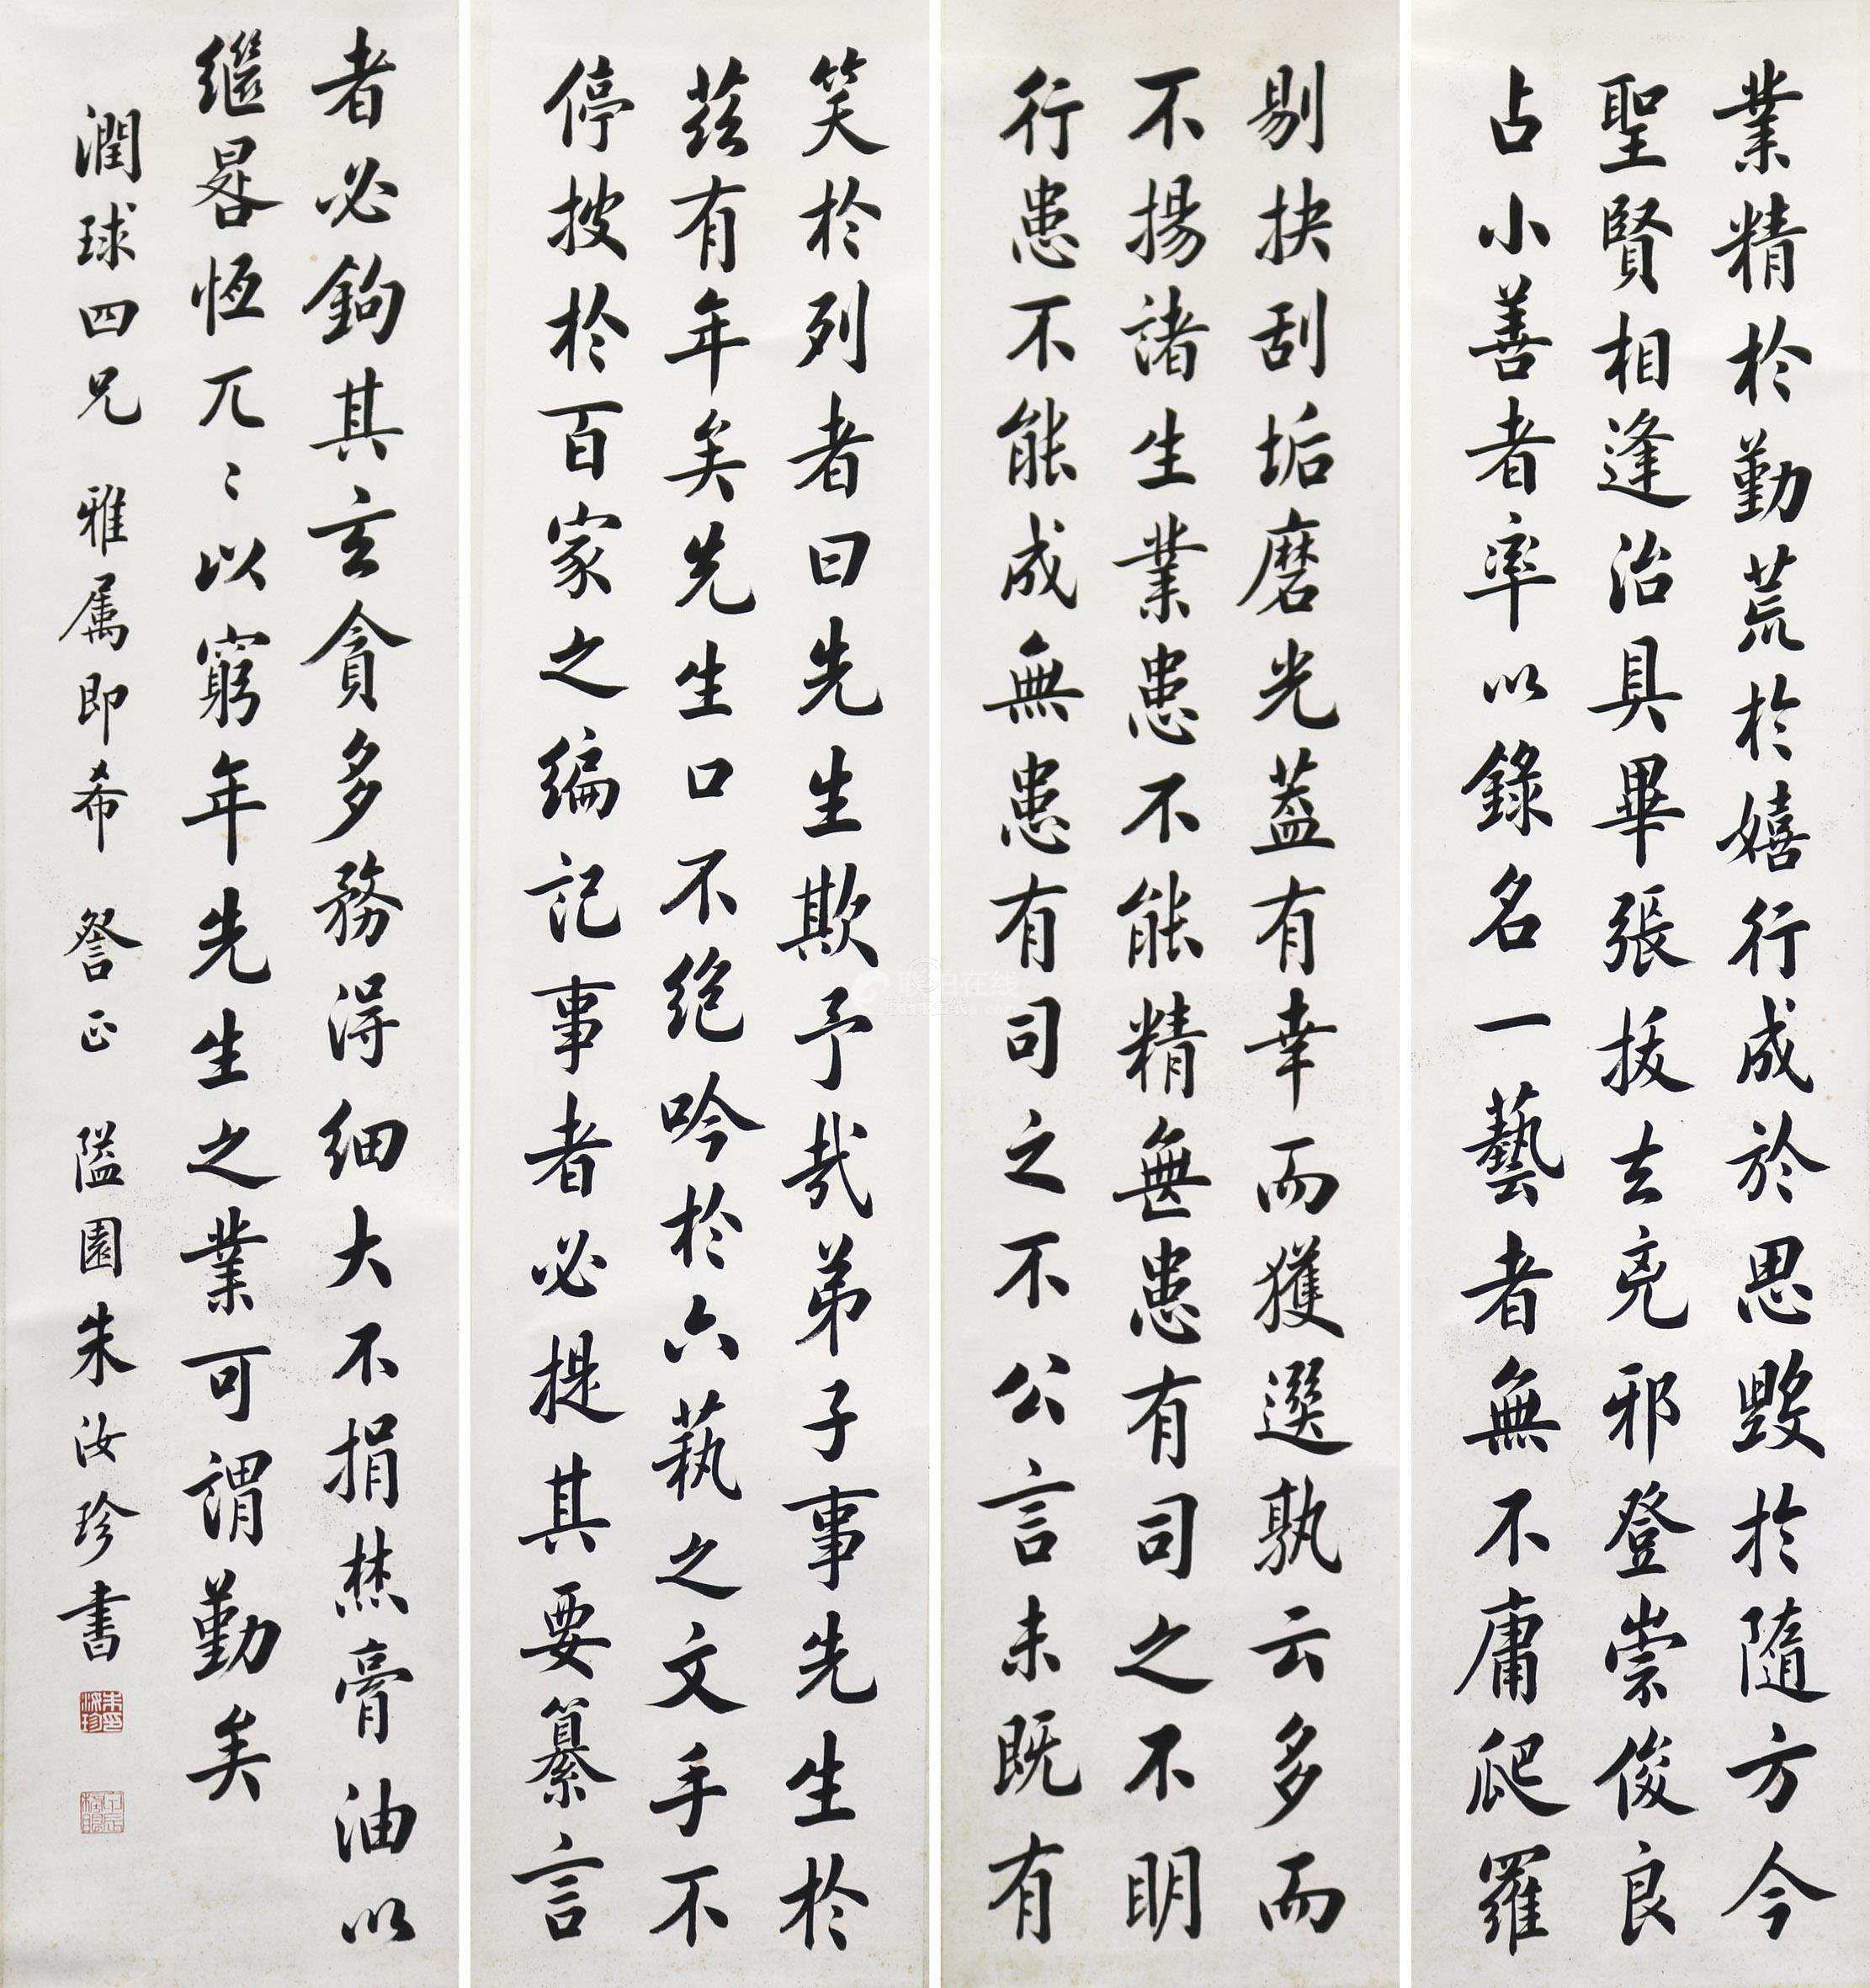 業精於勤荒於嬉行成於思毀於隨方今
聖賢相逢治具畢張拔去兇邪登崇俊良
占小善者率以錄名一藝者無不庸爬羅
剔抉刮垢磨光蓋有幸而獲選孰云多而
不揚諸生業患不能精無患有司之不明
行患不能成無患有司之不公言未既有
笑於列者曰先生欺予哉弟子事先生於
茲有年矣先生口不絕吟於六蓺之文手不
停披於百家之編記事者必提其要纂言
者必鉤其玄貪多務得細大不捐焚膏油以
繼晷恆兀〻以窮年先生之業可謂勤矣
潤球四兄 雅属即希 詧正 隘園朱汝珍書
朱印汝珍
甲辰榜眼
联拍在线